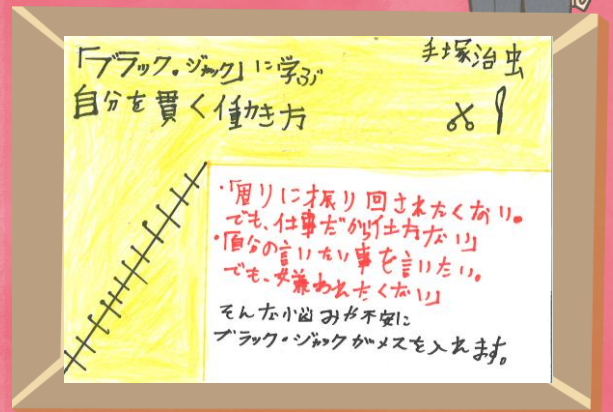 「ブラック・ジャック」に学ぶ
自分を貫く働き方
手塚治虫
・「周りに振り回されたくない。
でも、仕事だから仕方ない」
・「自分の言いたい事を言いたい。
でも、嫌われたくない」
そんな小凶みや不安に
ブラック・ジャックがメスを入れます。